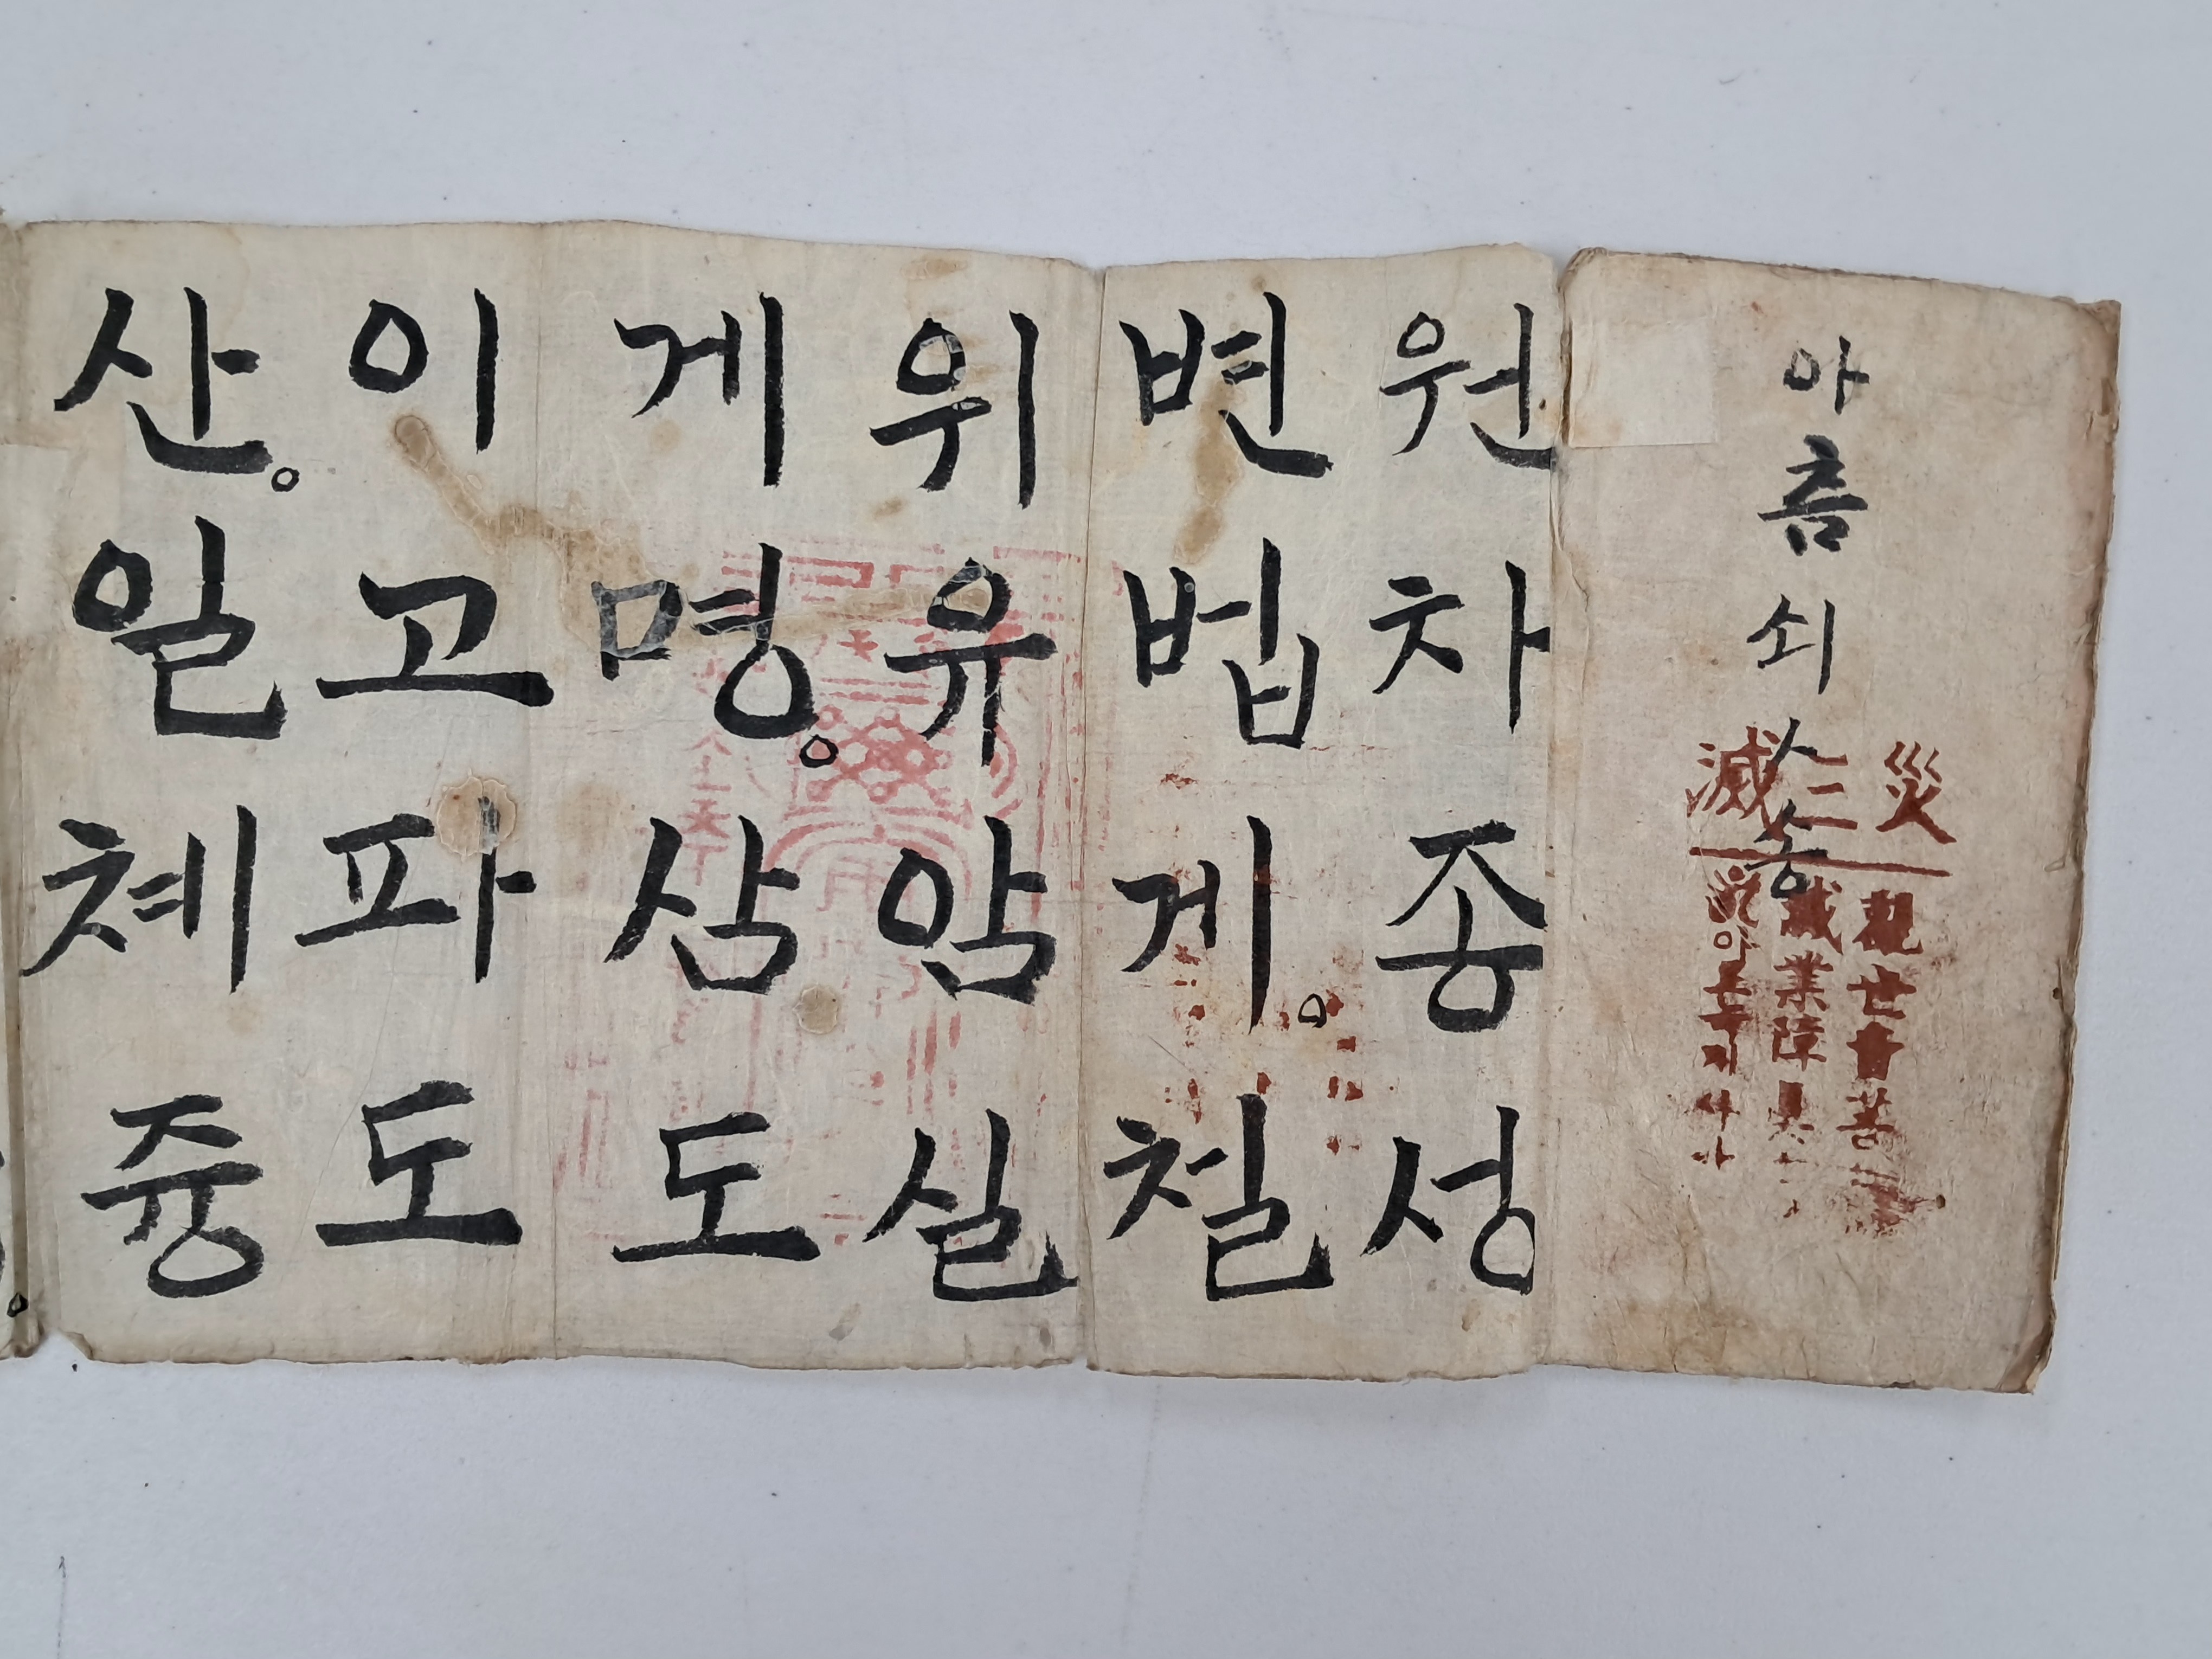 아츰쇠송
災
三
滅
觀世音菩
滅業障
원차죵셩
변법게。쳘
위유암실
게명。삼도
이고파도
산。일쳬
즁